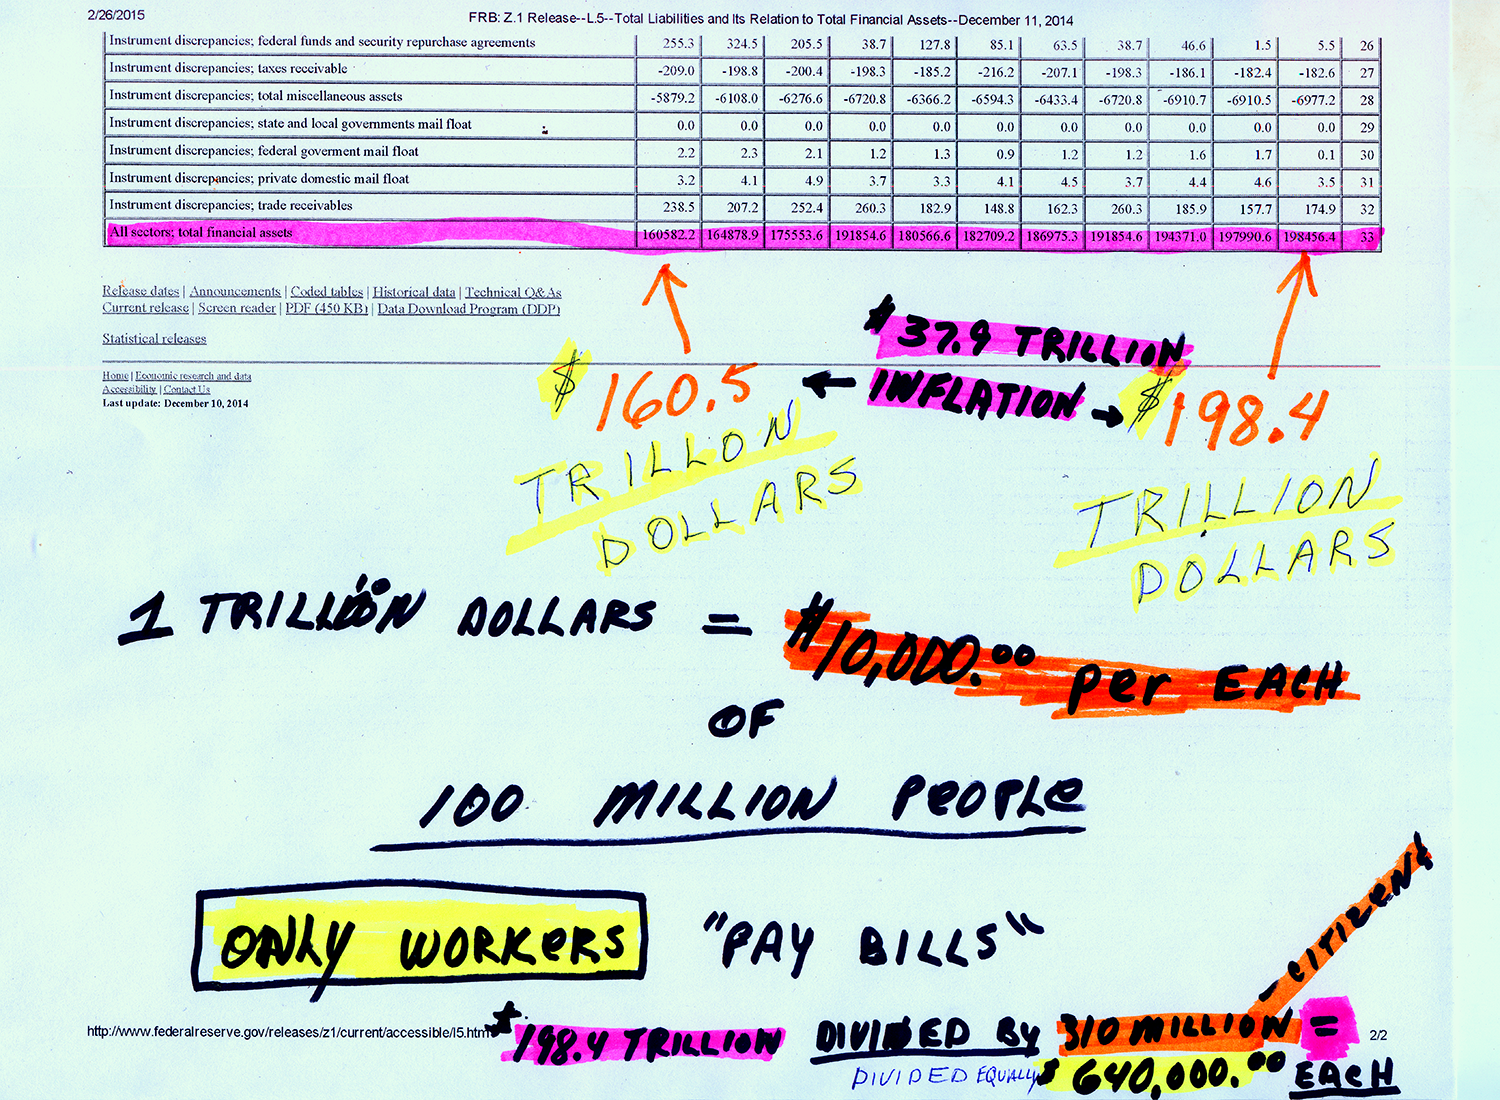 2/26/2015 FRB: Z.1 Release--L.5--Total Liabilities and Its Relation to Total Financial Assets--December 11, 2014
Instrument discrepancies; federal funds and security repurchase agreements 255.3 324.5 205.5 38.7 127.8 85.1 63.5 38.7 46.6 1.5 5.5 26
Instrument discrepancies; taxes receivable -209.0 -198.8 -200.4 -198.3 -185.2 -216.2 -207.1 -198.3 -186.1 -182.4 -182.6 27
Instrument discrepancies; total miscellaneous assets -5879.2 -6108.0 -6276.6 -6720.8 -6366.2 -6594.3 -6433.4 -6720.8 -6910.7 -6910.5 -6977.2 28
Instrument discrepancies; state and local governments mail float 0.0 0.0 0.0 0.0 0.0 0.0 0.0 0.0 0.0 0.0 0.0 29
Instrument discrepancies; federal goverment mail float 2.2 2.3 2.1 1.2 1.3 0.9 1.2 1.2 1.6 1.7 0.1 30
Instrument discrepancies; private domestic mail float 3.2 4.1 4.9 3.7 3.3 4.1 4.5 3.7 4.4 4.6 3.5 31
Instrument discrepancies; trade receivables 238.5 207.2 252.4 260.3 182.9 148.8 162.3 260.3 185.9 157.7 174.9 32
All sectors; total financial assets 160582.2 164878.9 175553.6 191854.6 180566.6 182709.2 186975.3 191854.6 194371.0 197990.6 198456.4 33
Release dates | Announcements | Coded tables | Historical data | Technical Q&As
Current release | Screen reader | PDF (450 KB) | Data Download Program (DDP)
Statistical releases
Home | Economic research and data
Accessibility | Contact Us
Last update: December 10, 2014
$ 37.9 TRILLION
INFLATION
$ 160.5
TRILLON
DOLLARS
$ 198.4
TRILLION
DOLLARS
1 TRILLION DOLLARS = $10,000.00 per EACH
OF
100 MILLION PEOPLE
ONLY WORKERS "PAY BILLS"
http://www.federalreserve.gov/releases/z1/current/accessible/l5.htm 2/2
$198.4 TRILLION DIVIDED BY 310 MILLION - CITIZENS =
DIVIDED EQUALLY $ 640,000.00 EACH